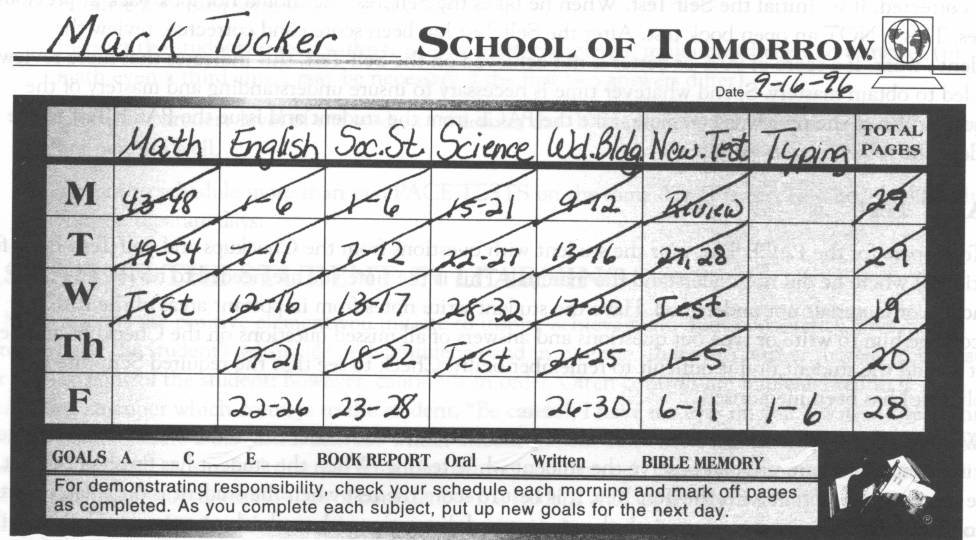 Mark Tucker SCHOOL OF TOMORROW.
Date 9-16-96
Math English Soc.St Science Wd.Bldg New.Test Typing TOTAL PAGES
M 43-48 1-6 1-6 15-21 9-12 Review 29
T 49-54 7-11 7-12 22-27 13-16 27,28 29
W Test 12-16 13-17 28-32 17-20 Test 19
Th 17-21 18-22 Test 21-25 1-5 20
F 22-26 23-28 26-30 6-11 1-6 28
GOALS A C E BOOK REPORT Oral Written BIBLE MEMORY
For demonstrating responsibility, check your schedule each morning and mark off pages
as completed. As you complete each subject, put up new goals for the next day.